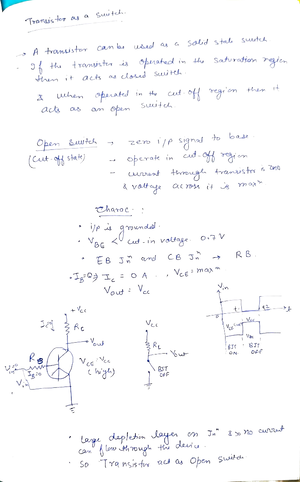 Transistor as a switch
→ A transistor can be used as a solid state switch
. If the transistor is operated in the saturation region
then it acts as closed switch.
& When operated in the cut off region then it
acts as an open switch
Open Switch → zero i/p signal to base.
(Cut-off state) → operate in cut-off region
- current through transistor is zero
& voltage across it is maxm
Charac :-
• i/p is grounded.
• VBE < cut-in voltage 0.7 V
• EB Jn and CB Jn → R B.
• IB = 0, IC = 0 A . . VCE = max m
Vout = VCC
+ VCC
RC
Vout
VCE = VCC
(high)
RB
IB = 0
Vin
VCC
RC
Vout
BJT
OFF
Vin
t1
t2
BJT
ON
BJT
OFF
• Large depletion layer on Jn & so no current
can flow through the device.
• So Transistor act as Open switch